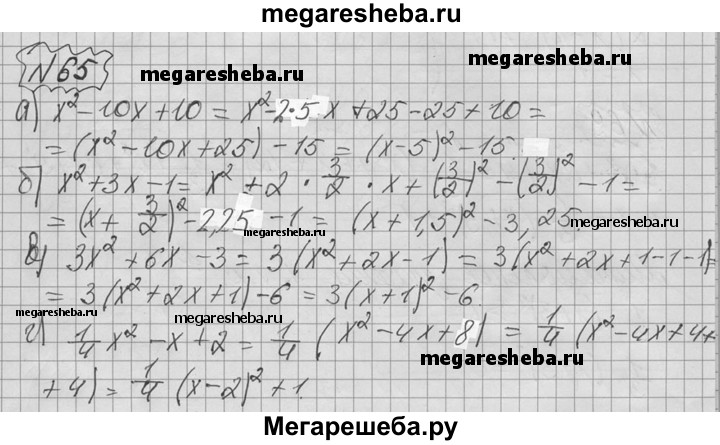 megaresheba.ru
N 65
megaresheba.ru megaresheba.ru
а) x² - 10x + 10 = x² - 2·5·x + 25 - 25 + 10 =
= (x² - 10x + 25) - 15 = (x - 5)² - 15.
б) x² + 3x - 1 = x² + 2 · 3/2 · x + (3/2)² - (3/2)² - 1 =
= (x + 3/2)² - 2,25 - 1 = (x + 1,5)² - 3,25.
megaresheba.ru megaresheba.ru
в) 3x² + 6x - 3 = 3(x² + 2x - 1) = 3(x² + 2x + 1 - 1 - 1) =
= 3(x² + 2x + 1) - 6 = 3(x + 1)² - 6.
megaresheba.ru megaresheba.ru
г) 1/4 x² - x + 2 = 1/4 (x² - 4x + 8) = 1/4 (x² - 4x + 4 +
megaresheba.ru
+ 4) = 1/4 (x - 2)² + 1.
Мегарешеба.ру